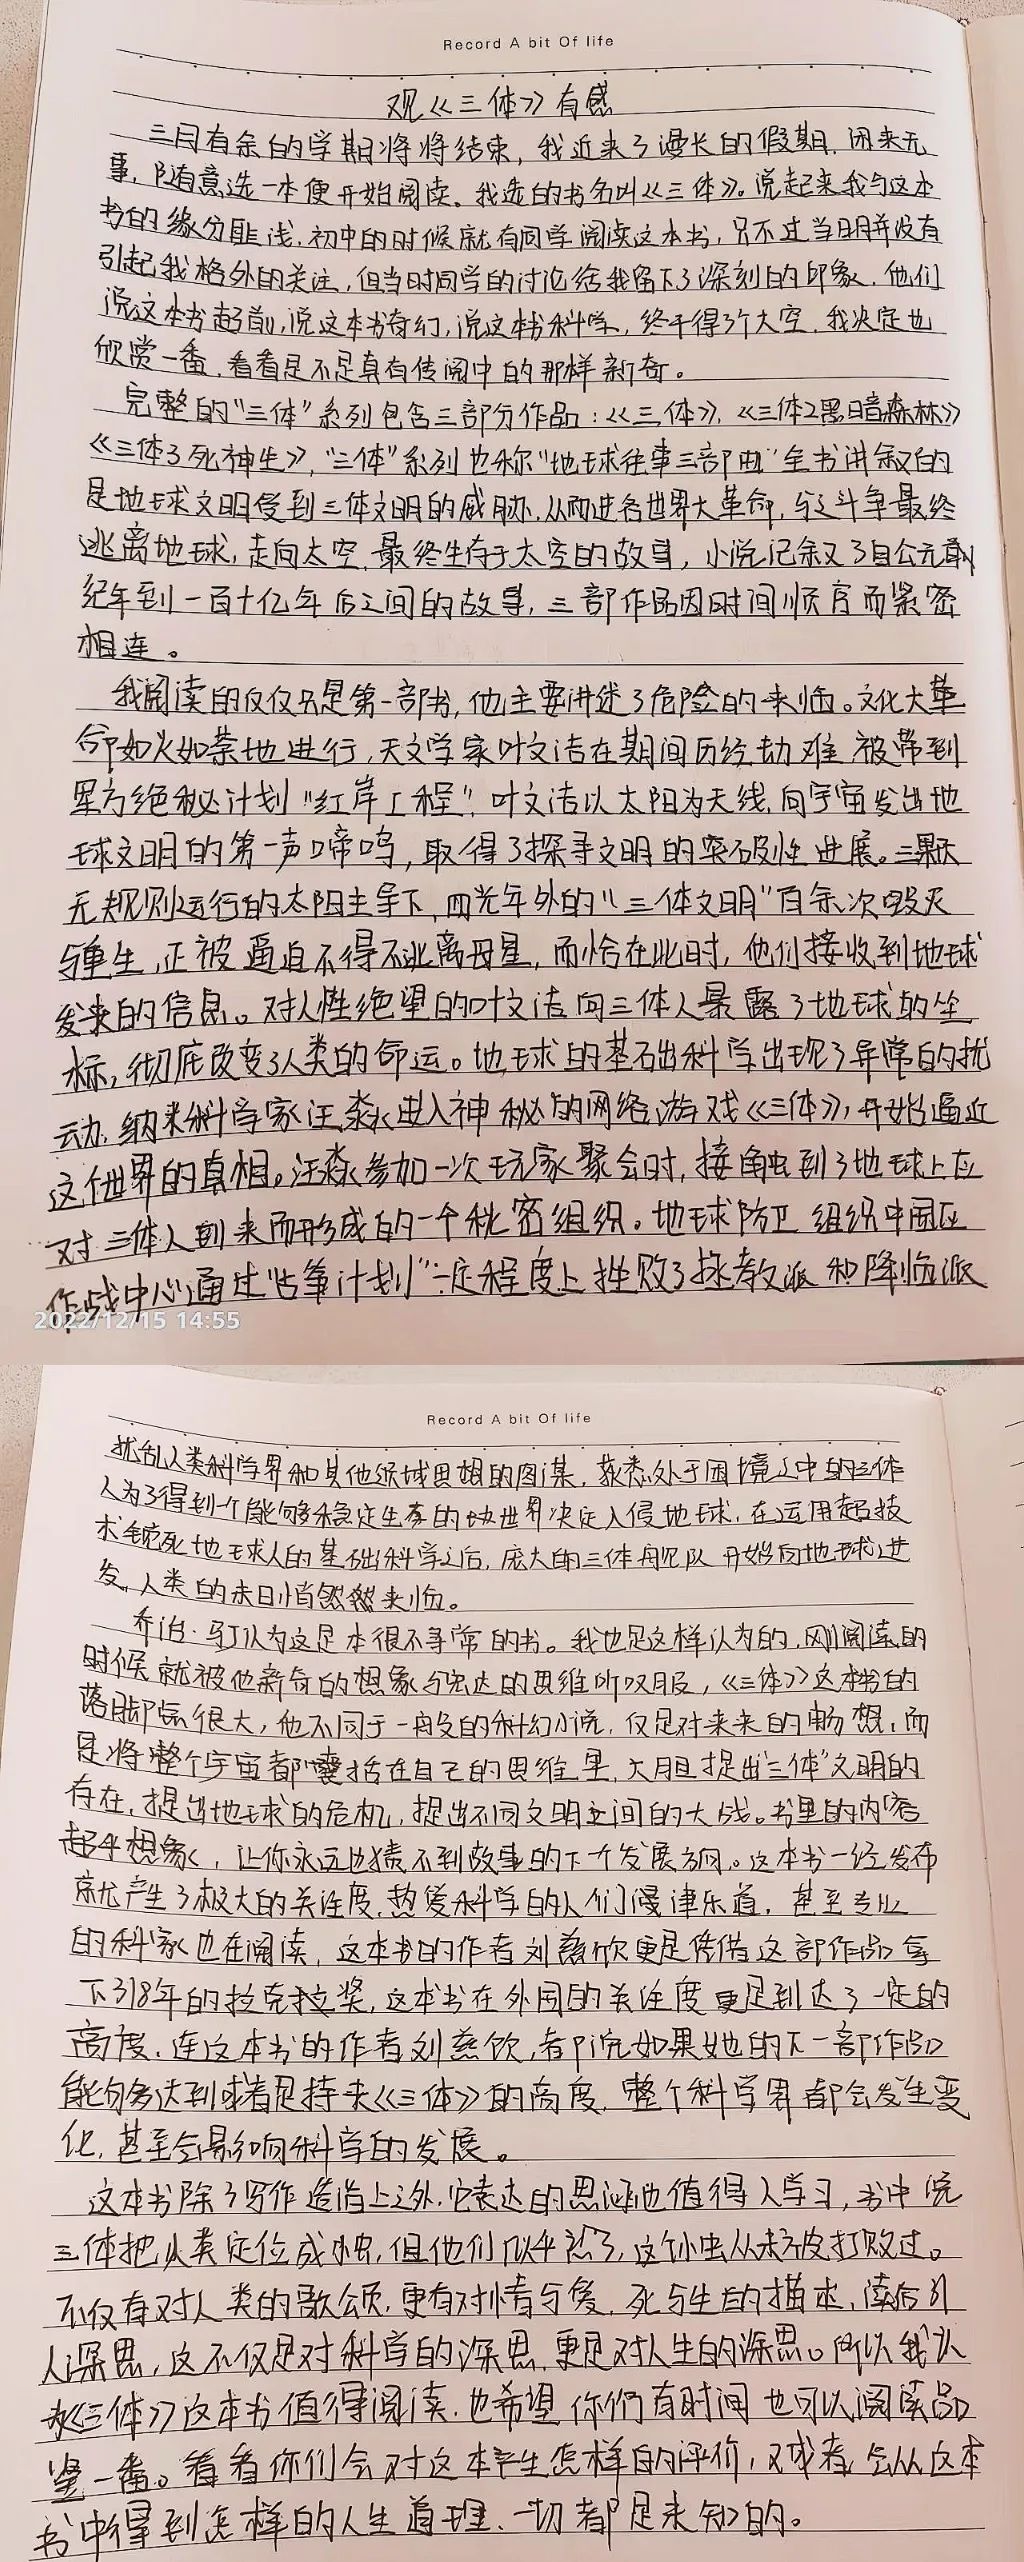 Record A bit Of life
观《三体》有感
三月有余的学期将将结束，我近来了漫长的假期，闲来无
事，随意选一本便开始阅读。我选的书名叫《三体》。说起来我与这本
书的缘分匪浅，初中的时候就有同学阅读这本书，只不过当时并没有
引起我格外的关注，但当时同学的讨论给我留下了深刻的印象，他们
说这本书超前，说这本书奇幻，说这本书科学，终于得了个大空，我决定也
欣赏一番，看看是不是真有传闻中的那样新奇。
完整的“三体”系列包含三部分作品：《三体》，《三体2黑暗森林》
《三体3死神生》，“三体”系列也称“地球往事三部曲”全书讲叙的
是地球文明受到三体文明的威胁，从而进各世界大革命，与之斗争最终
逃离地球，走向太空，最终生存于太空的故事，小说记叙了自公元前
纪年到一百十亿年后之间的故事，三部作品因时间顺序而紧密
相连。
我阅读的仅仅只是第一部书，他主要讲述了危险的来临。文化大革
命如火如荼地进行，天文学家叶文洁在期间历经劫难，被带到
军方绝秘计划“红岸工程”，叶文洁以太阳为天线，向宇宙发出地
球文明的第一声啼鸣，取得了探寻文明的突破性进展。三颗
无规则运行的太阳主导下，四光年外的“三体文明”百余次毁灭
与重生，正被逼迫不得不逃离母星，而恰在此时，他们接收到地球
发来的信息。对人性绝望的叶文洁向三体人暴露了地球的坐
标，彻底改变了人类的命运。地球的基础科学出现了异常的扰
动，纳米科学家汪淼进入神秘的网络游戏《三体》，开始逼近
这个世界的真相。汪淼参加一次玩家聚会时，接触到了地球上应
对三体人到来而形成的一个秘密组织。地球防卫组织中国区
作战中心通过“古筝计划”一定程度上挫败了拯教派和降临派
2022/12/15 14:55
Record A bit Of life
扰乱人类科学界和其他领域思想的图谋，获悉处于困境之中的三体
人为了得到一个能够稳定生存的世界决定入侵地球，在运用超技
术锁死地球人的基础科学之后，庞大的三体舰队开始向地球进
发，人类的末日悄然来临。
乔治·马丁认为这是本很不寻常的书。我也是这样认为的，刚阅读的
时候就被他新奇的想象与宏达的思维所叹服，《三体》这本书的
落脚点很大，他不同于一般的科幻小说，仅是对未来的畅想，而
是将整个宇宙都囊括在自己的思维里，大胆提出“三体”文明的
存在，提出地球的危机，提出不同文明之间的大战。书里的内容
超乎想象，让你永远也猜不到故事的下一个发展方向。这本书一经发布
就产生了极大的关注度，热爱科学的人们漫津乐道，甚至专业
的科家也在阅读，这本书的作者刘慈欣更是凭借这部作品拿
下318年的拉克拉奖，这本书在外国的关注度更是到达了一定的
高度，连这本书的作者刘慈欣，都说如果她的下一部作品
能够达到或者是持来《三体》的高度，整个科学界都会发生变
化，甚至会影响科学的发展。
这本书除了写作造诣上之外，它表达的思涵也值得人学习，书中说
三体把人类定位成虫，但他们似乎忘了，这个小虫从未被打败过。
不仅有对人类的歌颂，更有对情与爱，死与生的描述，读后引
人深思，这不仅是对科学的深思，更是对人生的深思。所以我认
为《三体》这本书值得阅读，也希望你们有时间也可以阅读品
鉴一番。看看你们会对这本产生怎样的评价，又或者，会从这本
书中得到怎样的人生道理，一切都是未知的。